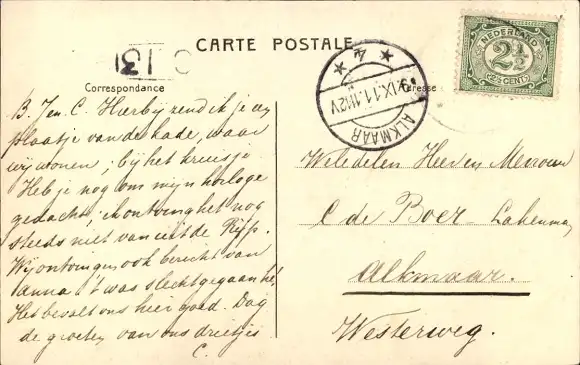 CARTE POSTALE
Correspondance
Adresse
NEDERLAND
2½
(2½ CENT)
ALKMAAR
9.IX.11.11-12V
4
B. J en C. Hierbij zend ik je een
plaatje van de kade, waar
wij wonen, bij het kruisje.
Heb je nog om mijn horloge
gedacht, ik ontving het nog
steeds niet van uit de Rijp.
Wij ontvingen ook bericht van
Anna: 't was slecht gegaan hé!
Het bevalt ons hier goed. Dag
de groeten van ons drietjes
C.
Weledelen Heer en Mevrouw
C de Boer
Alkmaar.
Westerweg.